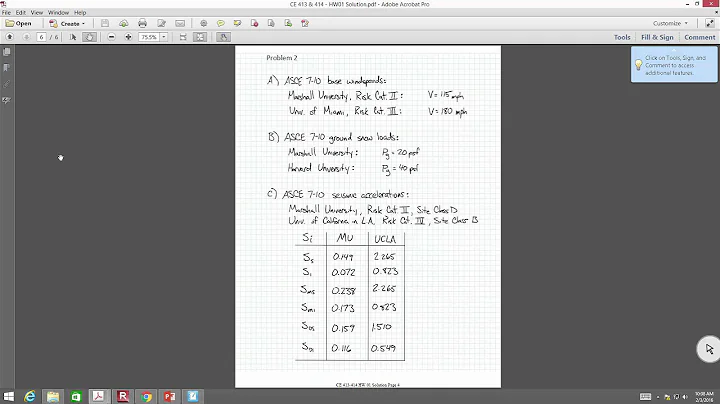 CE 413 & 414 - HW01 Solution.pdf - Adobe Acrobat Pro
File Edit View Window Help
Open
Create
Customize
6 / 6
75.5%
Tools
Fill & Sign
Comment
Click on Tools, Sign, and
Comment to access
additional features.
Problem 2
A) ASCE 7-10 base windspeeds:
Marshall University, Risk Cat. II: V = 115 mph
Univ. of Miami, Risk Cat. III: V = 180 mph
B) ASCE 7-10 ground snow loads:
Marshall University: Pg = 20 psf
Harvard University: Pg = 40 psf
C) ASCE 7-10 seismic accelerations:
Marshall University, Risk Cat III, Site Class D
Univ. of California in L.A. Risk Cat. IV, Site Class B
Si MU UCLA
Ss 0.149 2.265
S1 0.072 0.823
SMS 0.238 2.265
SM1 0.173 0.823
SDS 0.159 1.510
SD1 0.116 0.549
CE 413-414 HW 01 Solution Page 4
10:08 AM
2/3/2016